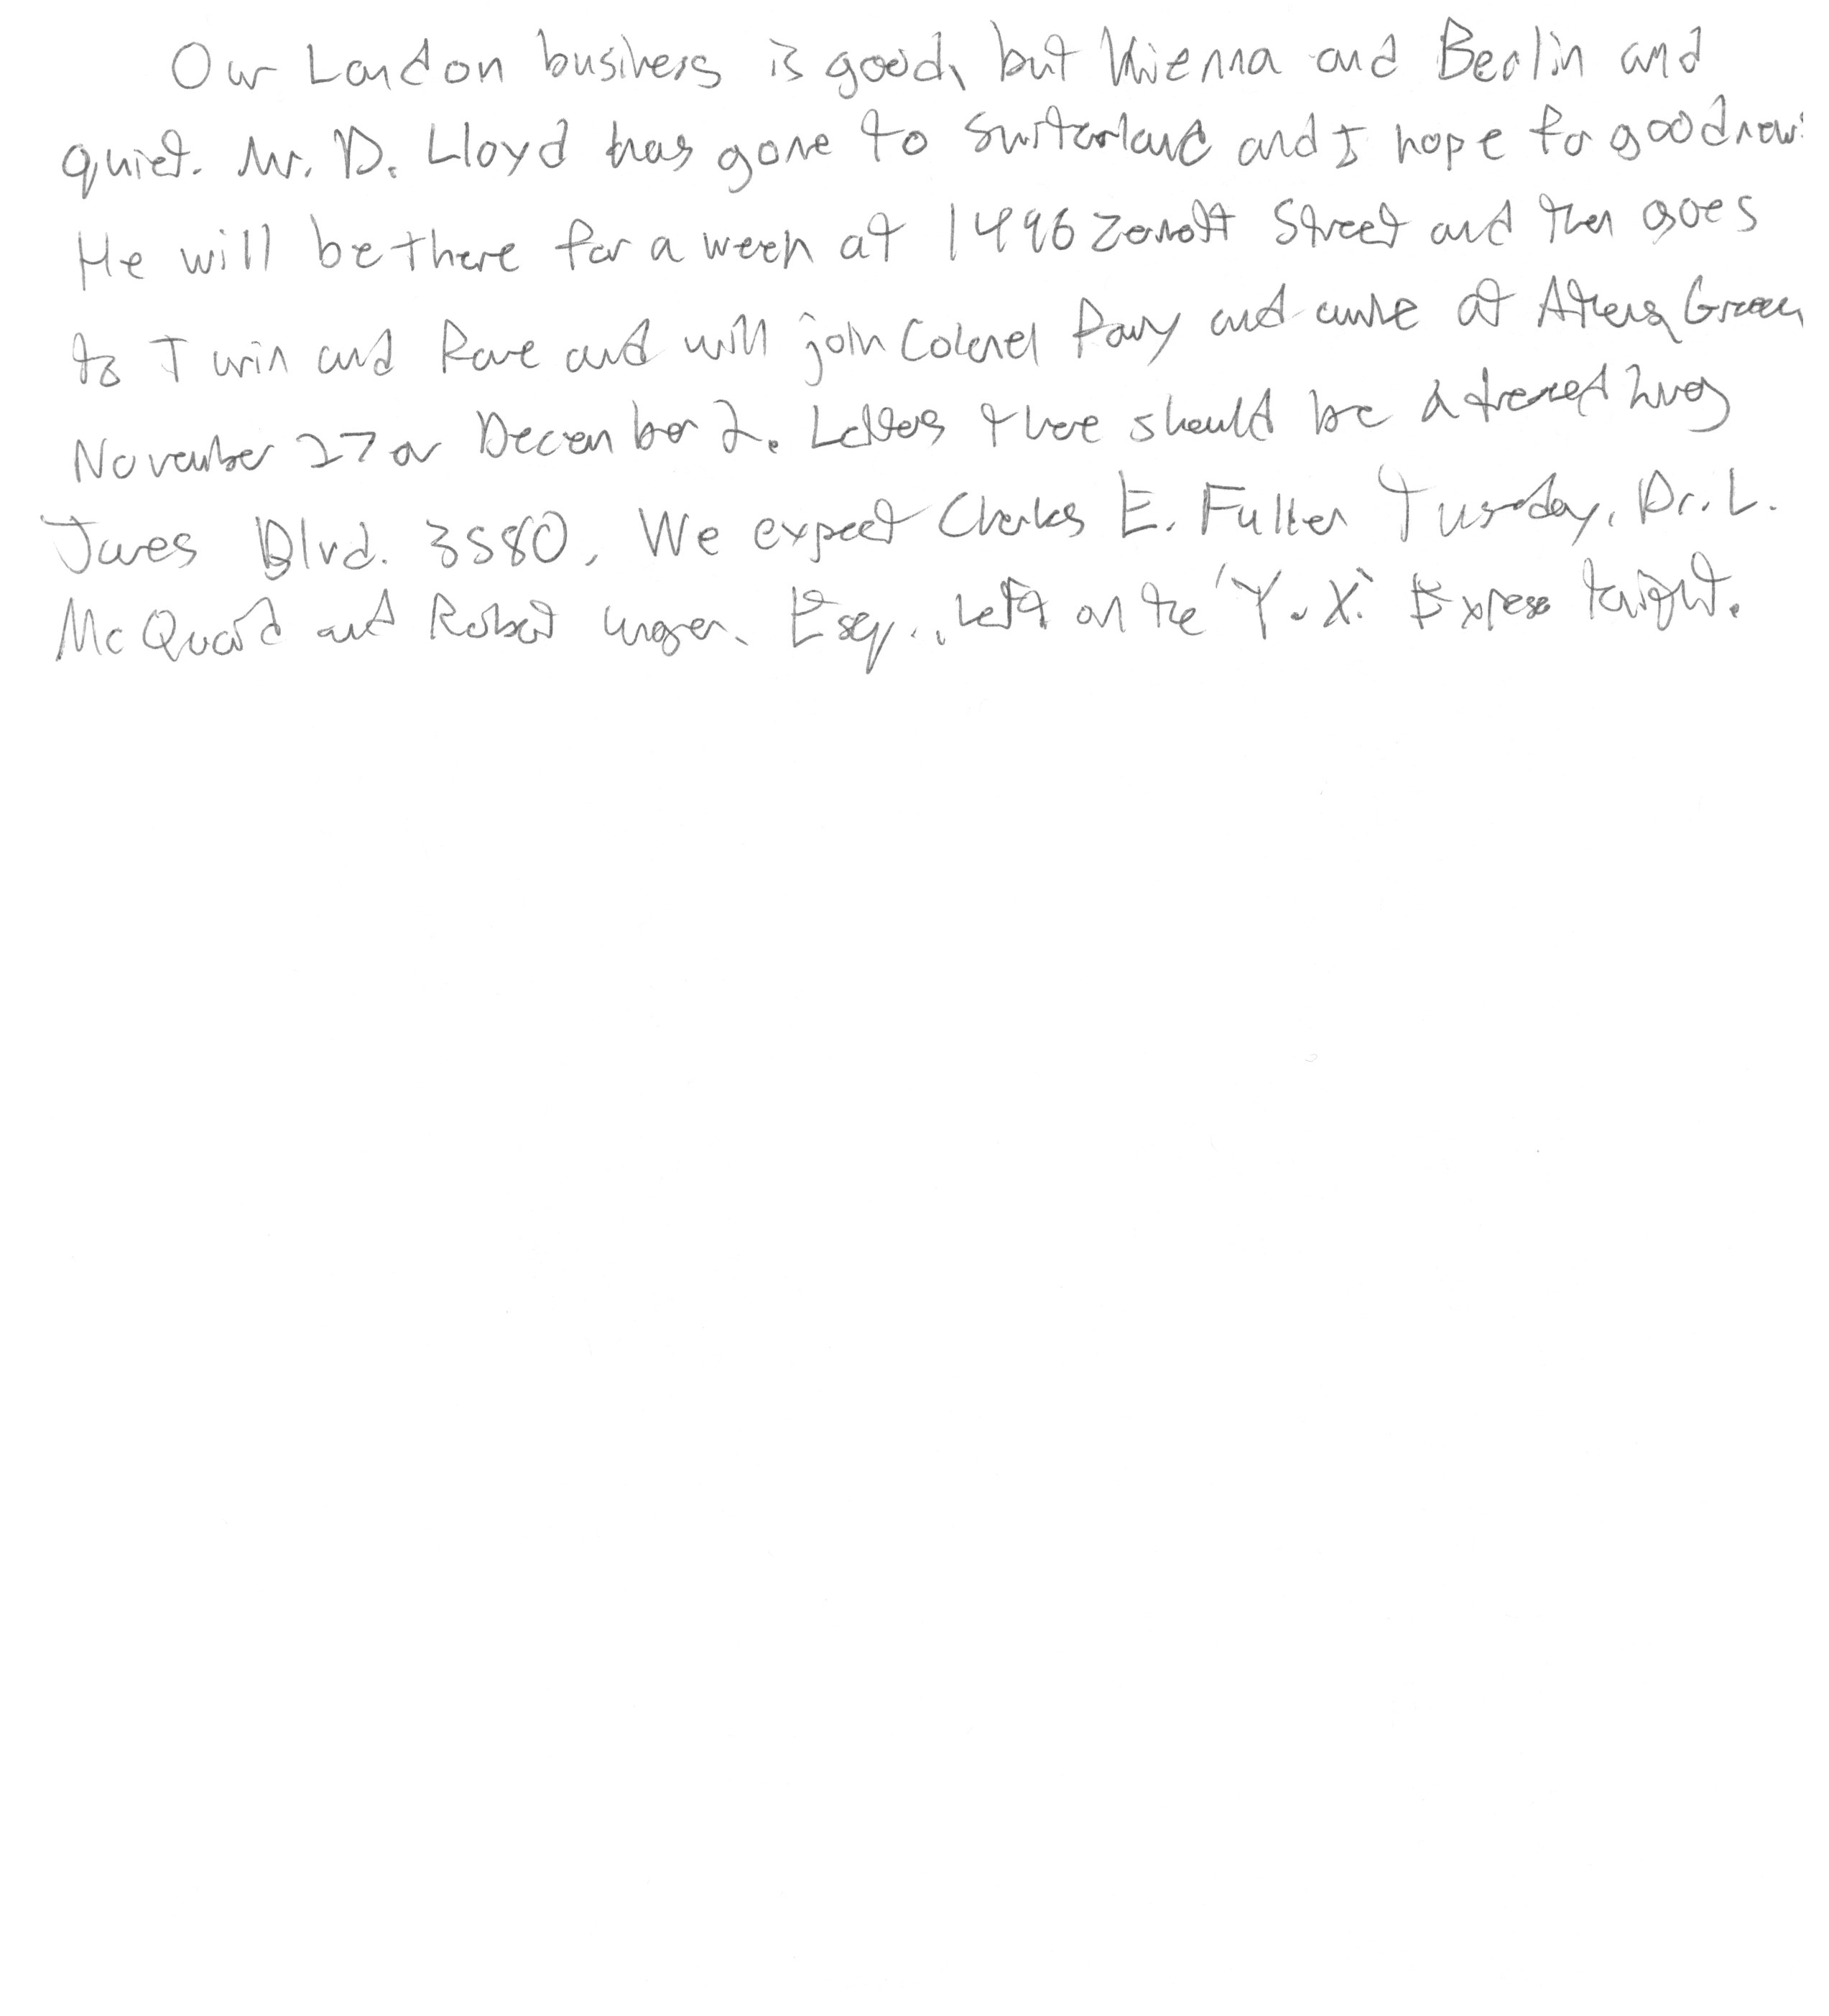 Our London business is good, but Vienna and Berlin and
quiet. Mr. D. Lloyd has gone to Switzerland and I hope for good news
He will be there for a week at 1496 Zermott Street and then goes
to Turin and Rome and will join Colonel Parry and at Athens, Greece
November 27 or December 2. Letters there should be addressed King
James Blvd. 3580. We expect Charles E. Fuller Tuesday. Dr. L.
McQuaid and Robert Unger, Esq., left on the 'Y.X.' Express tonight.